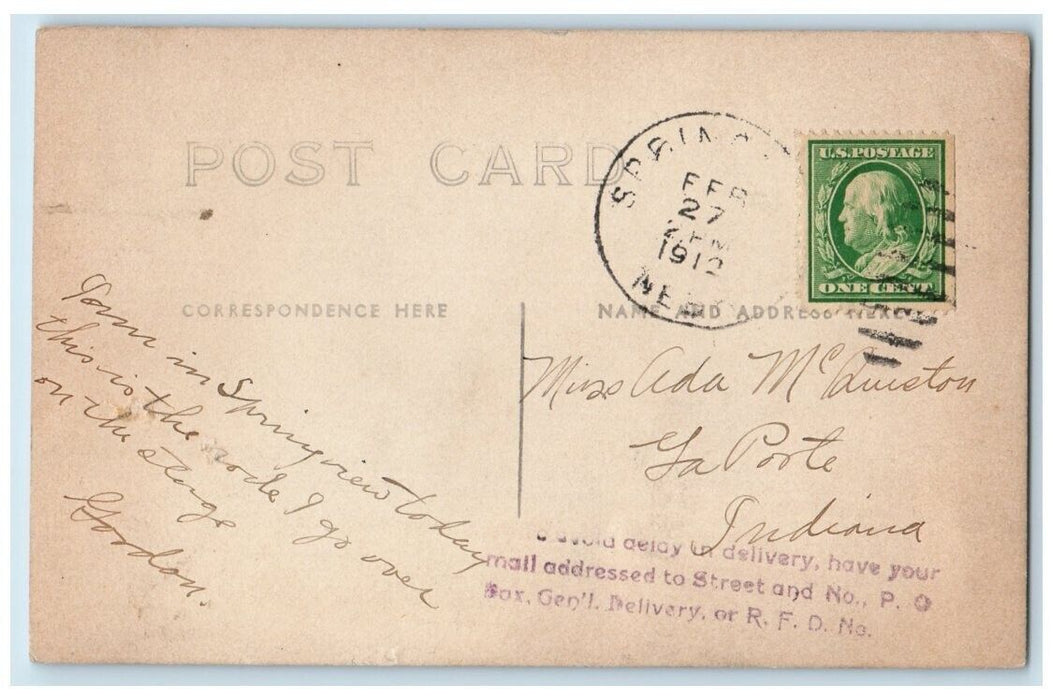 POST CARD
SPRING
FEB
27
2 PM
1912
NEB
U.S. POSTAGE
ONE CENT
CORRESPONDENCE HERE
NAME AND ADDRESS HERE
I am in Springview today
this is the rode I go over
on the stage
Gordon.
Miss Ada McQuiston
La Porte
Indiana
avoid delay in delivery, have your
mail addressed to Street and No., P. O
Box, Gen'l. Delivery, or R. F. D. No.